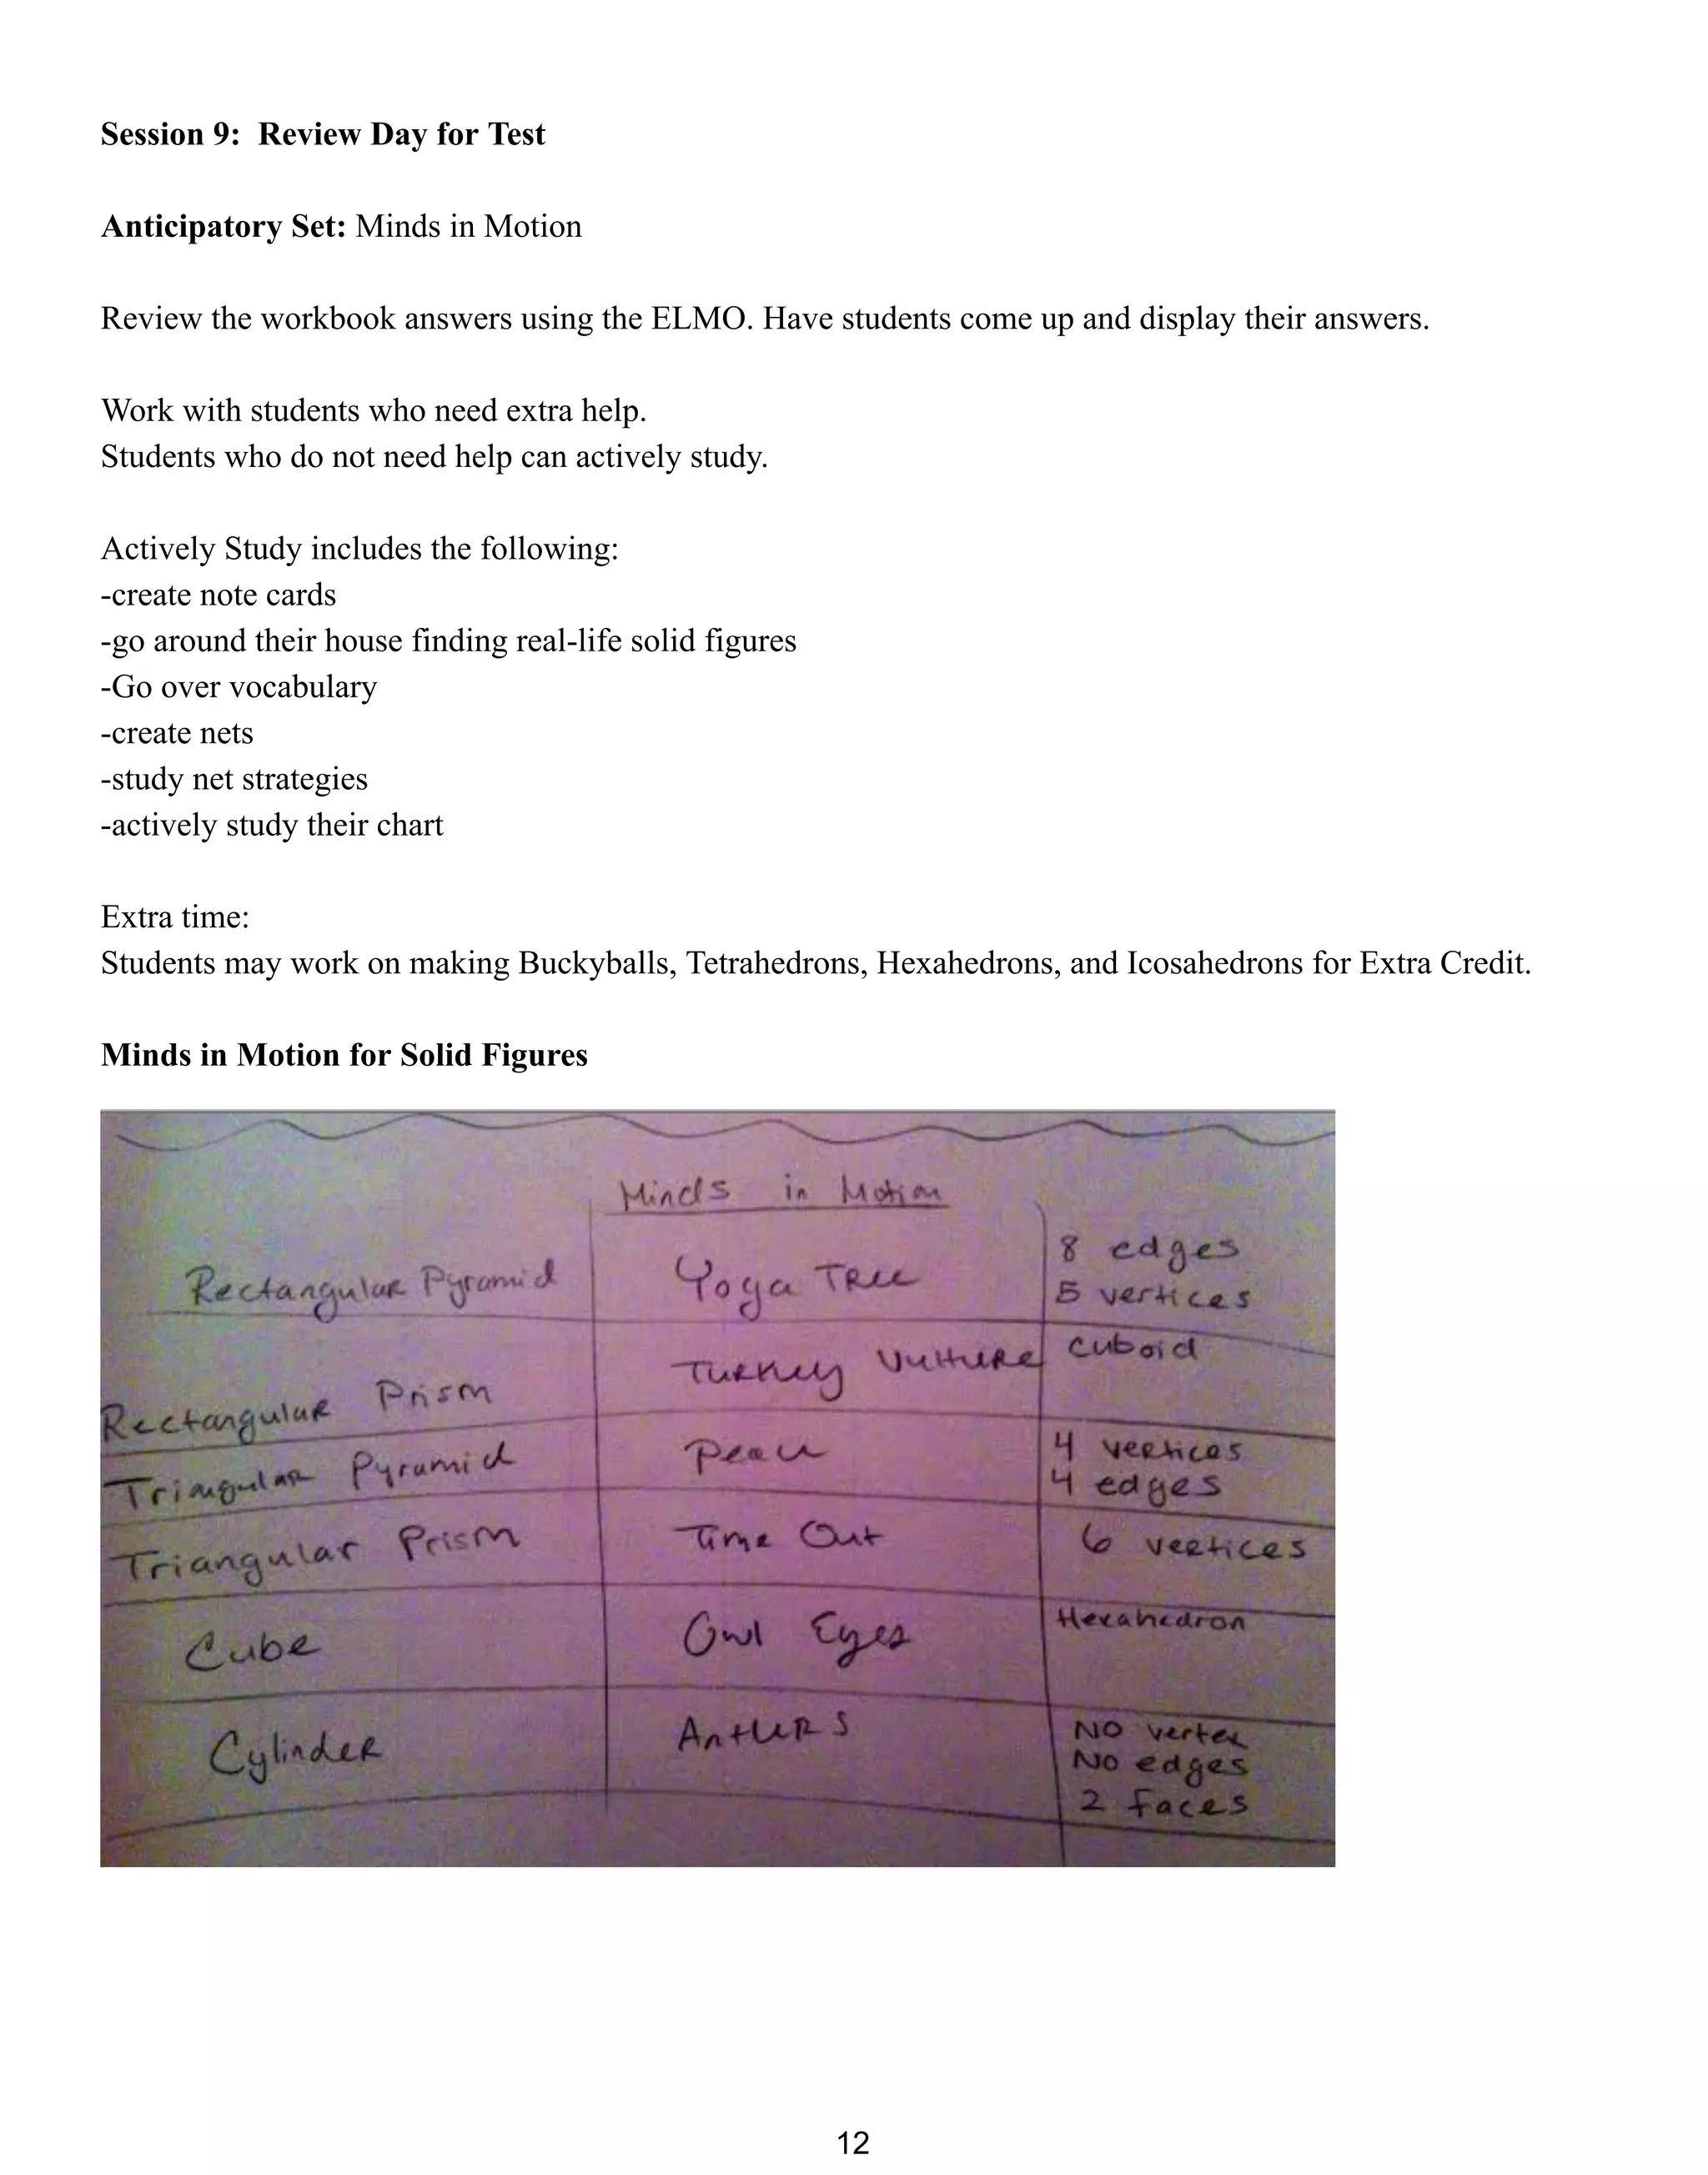 Session 9: Review Day for Test
Anticipatory Set: Minds in Motion
Review the workbook answers using the ELMO. Have students come up and display their answers.
Work with students who need extra help.
Students who do not need help can actively study.
Actively Study includes the following:
-create note cards
-go around their house finding real-life solid figures
-Go over vocabulary
-create nets
-study net strategies
-actively study their chart
Extra time:
Students may work on making Buckyballs, Tetrahedrons, Hexahedrons, and Icosahedrons for Extra Credit.
Minds in Motion for Solid Figures
Minds in Motion
Rectangular Pyramid Yoga Tree 8 edges
5 vertices
Rectangular Prism Turkey Vulture cuboid
Triangular Pyramid 4 vertices
4 edges
Triangular Prism Time Out 6 vertices
Cube Owl Eyes Hexahedron
Cylinder Antlers No vertex
No edges
2 faces
12